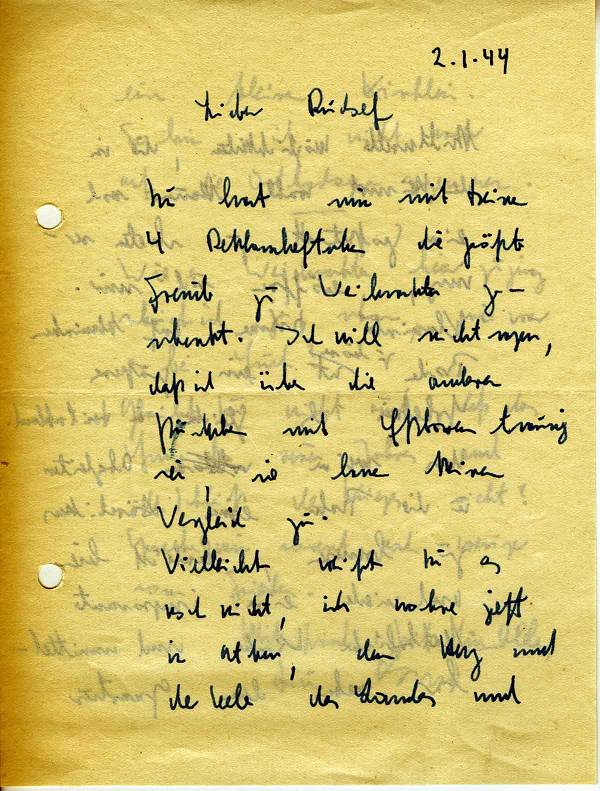 2.1.44
Lieber Rudolf
Du hast mir mit Deinen
4 Reklamheften die größte
Freude zu Weihnachten ge-
schenkt. Ich will nicht sagen,
daß ich über die anderen
Päckchen mit Eßwaren traurig
sei, sie keinen
Vergleich zu.
Vielleicht weißt Du es
noch nicht, ich wohne jetzt
in Athen, dem Herz und
der Seele des Landes und